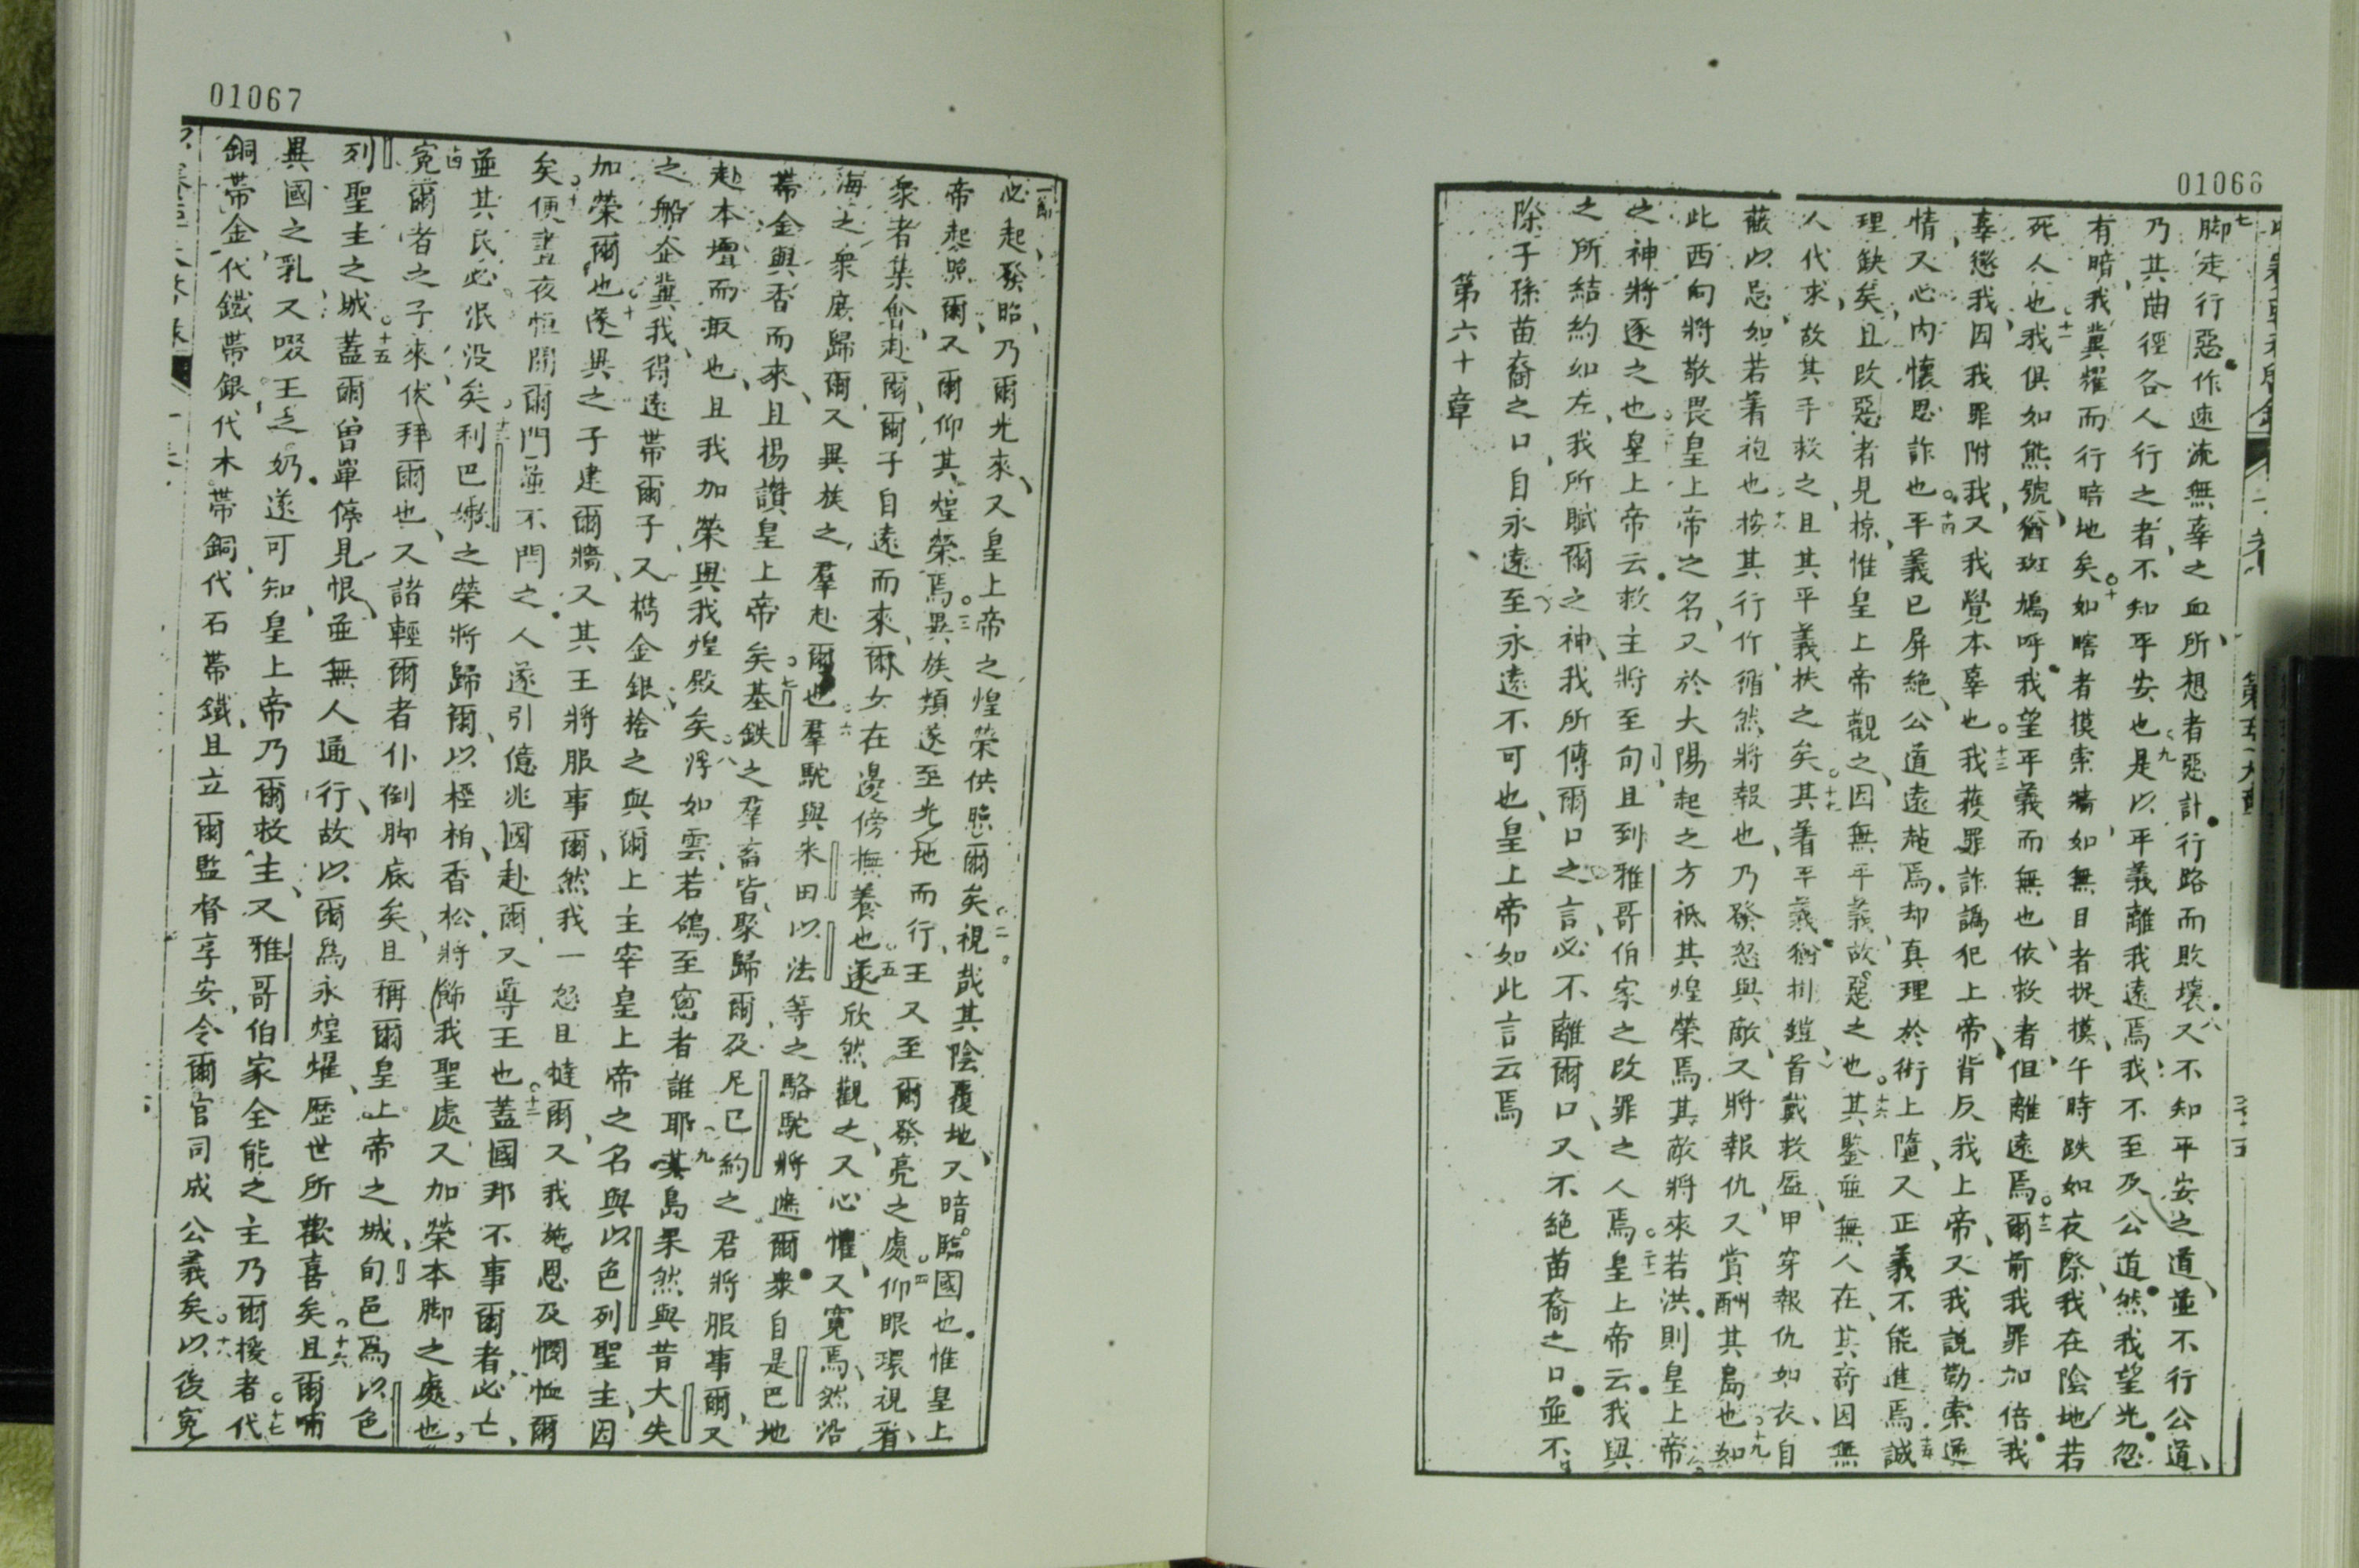 01066
脚走行惡作速流無辜之血所想者惡計行路而敗壞又不知平安之道並不行公道
乃其曲徑各人行之者不知平安也是以平義離我遠焉我不至及公道然我望光忽
有暗我冀耀而行暗地矣如瞎者摸索墻如無目者捉摸午時跌如夜祭我在陰地若
死人也我俱如熊號猶斑鳩呼我望平義而無也依救者但離遠焉爾前我罪加倍我
辜懲我因我罪附我又我覺本辜也我獲罪詐譌犯上帝背反我上帝又我説勒索逆
情又心内懷思詐也平義已屏絶公道遠離焉却真理於街上墮又正義不能進焉誠
理缺矣且改惡者見掠惟皇上帝觀之因無平義故惡之也其鑒並無人在其奇因無
人代求故其手救之且其平義扶之矣其着平義猶掛鎧首戴救盔甲穿報仇如衣自
蔽以忌如若着袍也按其行作循然將報也乃發怒與敵又將報仇又賞酬其島也如
此西向將敬畏皇上帝之名又於大陽起之方祗其煌榮焉其敵將來若洪則皇上帝
之神將逐之也皇上帝云救主將至旬且到雅哥伯家之改罪之人焉皇上帝云我與
之所結約如左我所賦爾之神我所傳爾口之言必不離爾口又不絶苗裔之口並不
除子孫苗裔之口自永遠至永遠不可也皇上帝如此言云焉
第六十章
01067
必起發昭乃爾光來又皇上帝之煌榮供照爾矣視哉其陰覆地又暗臨國也惟皇上
帝起照爾又爾仰其煌榮焉異族類遂至光地而行王又至爾發亮之處仰眼環視看
衆者集會赴爾爾子自遠而來爾女在邊傍撫養也遂欣然觀之又心懼又寬焉然沿
海之衆庶歸爾又異族之羣赴爾也羣駝與米田以法等之駱駝將遮爾衆自是巴地
帶金與香而來且揚讃皇上帝矣基鉄之羣畜皆聚歸爾及尼巴約之君將服事爾又
赴本壇而取也且我加榮與我煌殿矣浮如雲若鴿至窓者誰耶其島果然與昔大失
之船企冀我得遠帶爾子又携金銀捨之與爾上主宰皇上帝之名與以色列聖主因
加榮爾也遂異之子建爾牆又其王將服事爾然我一怒且撻爾又我施恩及憫恤爾
矣便晝夜恒開爾門並不閂之人遂引億兆國赴爾又尊王也蓋國邦不事爾者必亡
並其民必泯没矣利巴嫩之榮將歸爾以樫柏香松將飾我聖處又加榮本脚之處也
寃爾者之子來伏拜爾也又諸輕爾者仆倒脚底矣且稱爾皇上帝之城旬邑爲以色
列聖主之城蓋爾曾單停見恨並無人通行故以爾爲永煌燿歷世所歡喜矣且爾哺
異國之乳又啜王之奶遂可知皇上帝乃爾救主又雅哥伯家全能之主乃爾援者代
銅帶金代鐵帶銀代木帶銅代石帶鐵且立爾監督享安令爾官司成公義矣以後寃